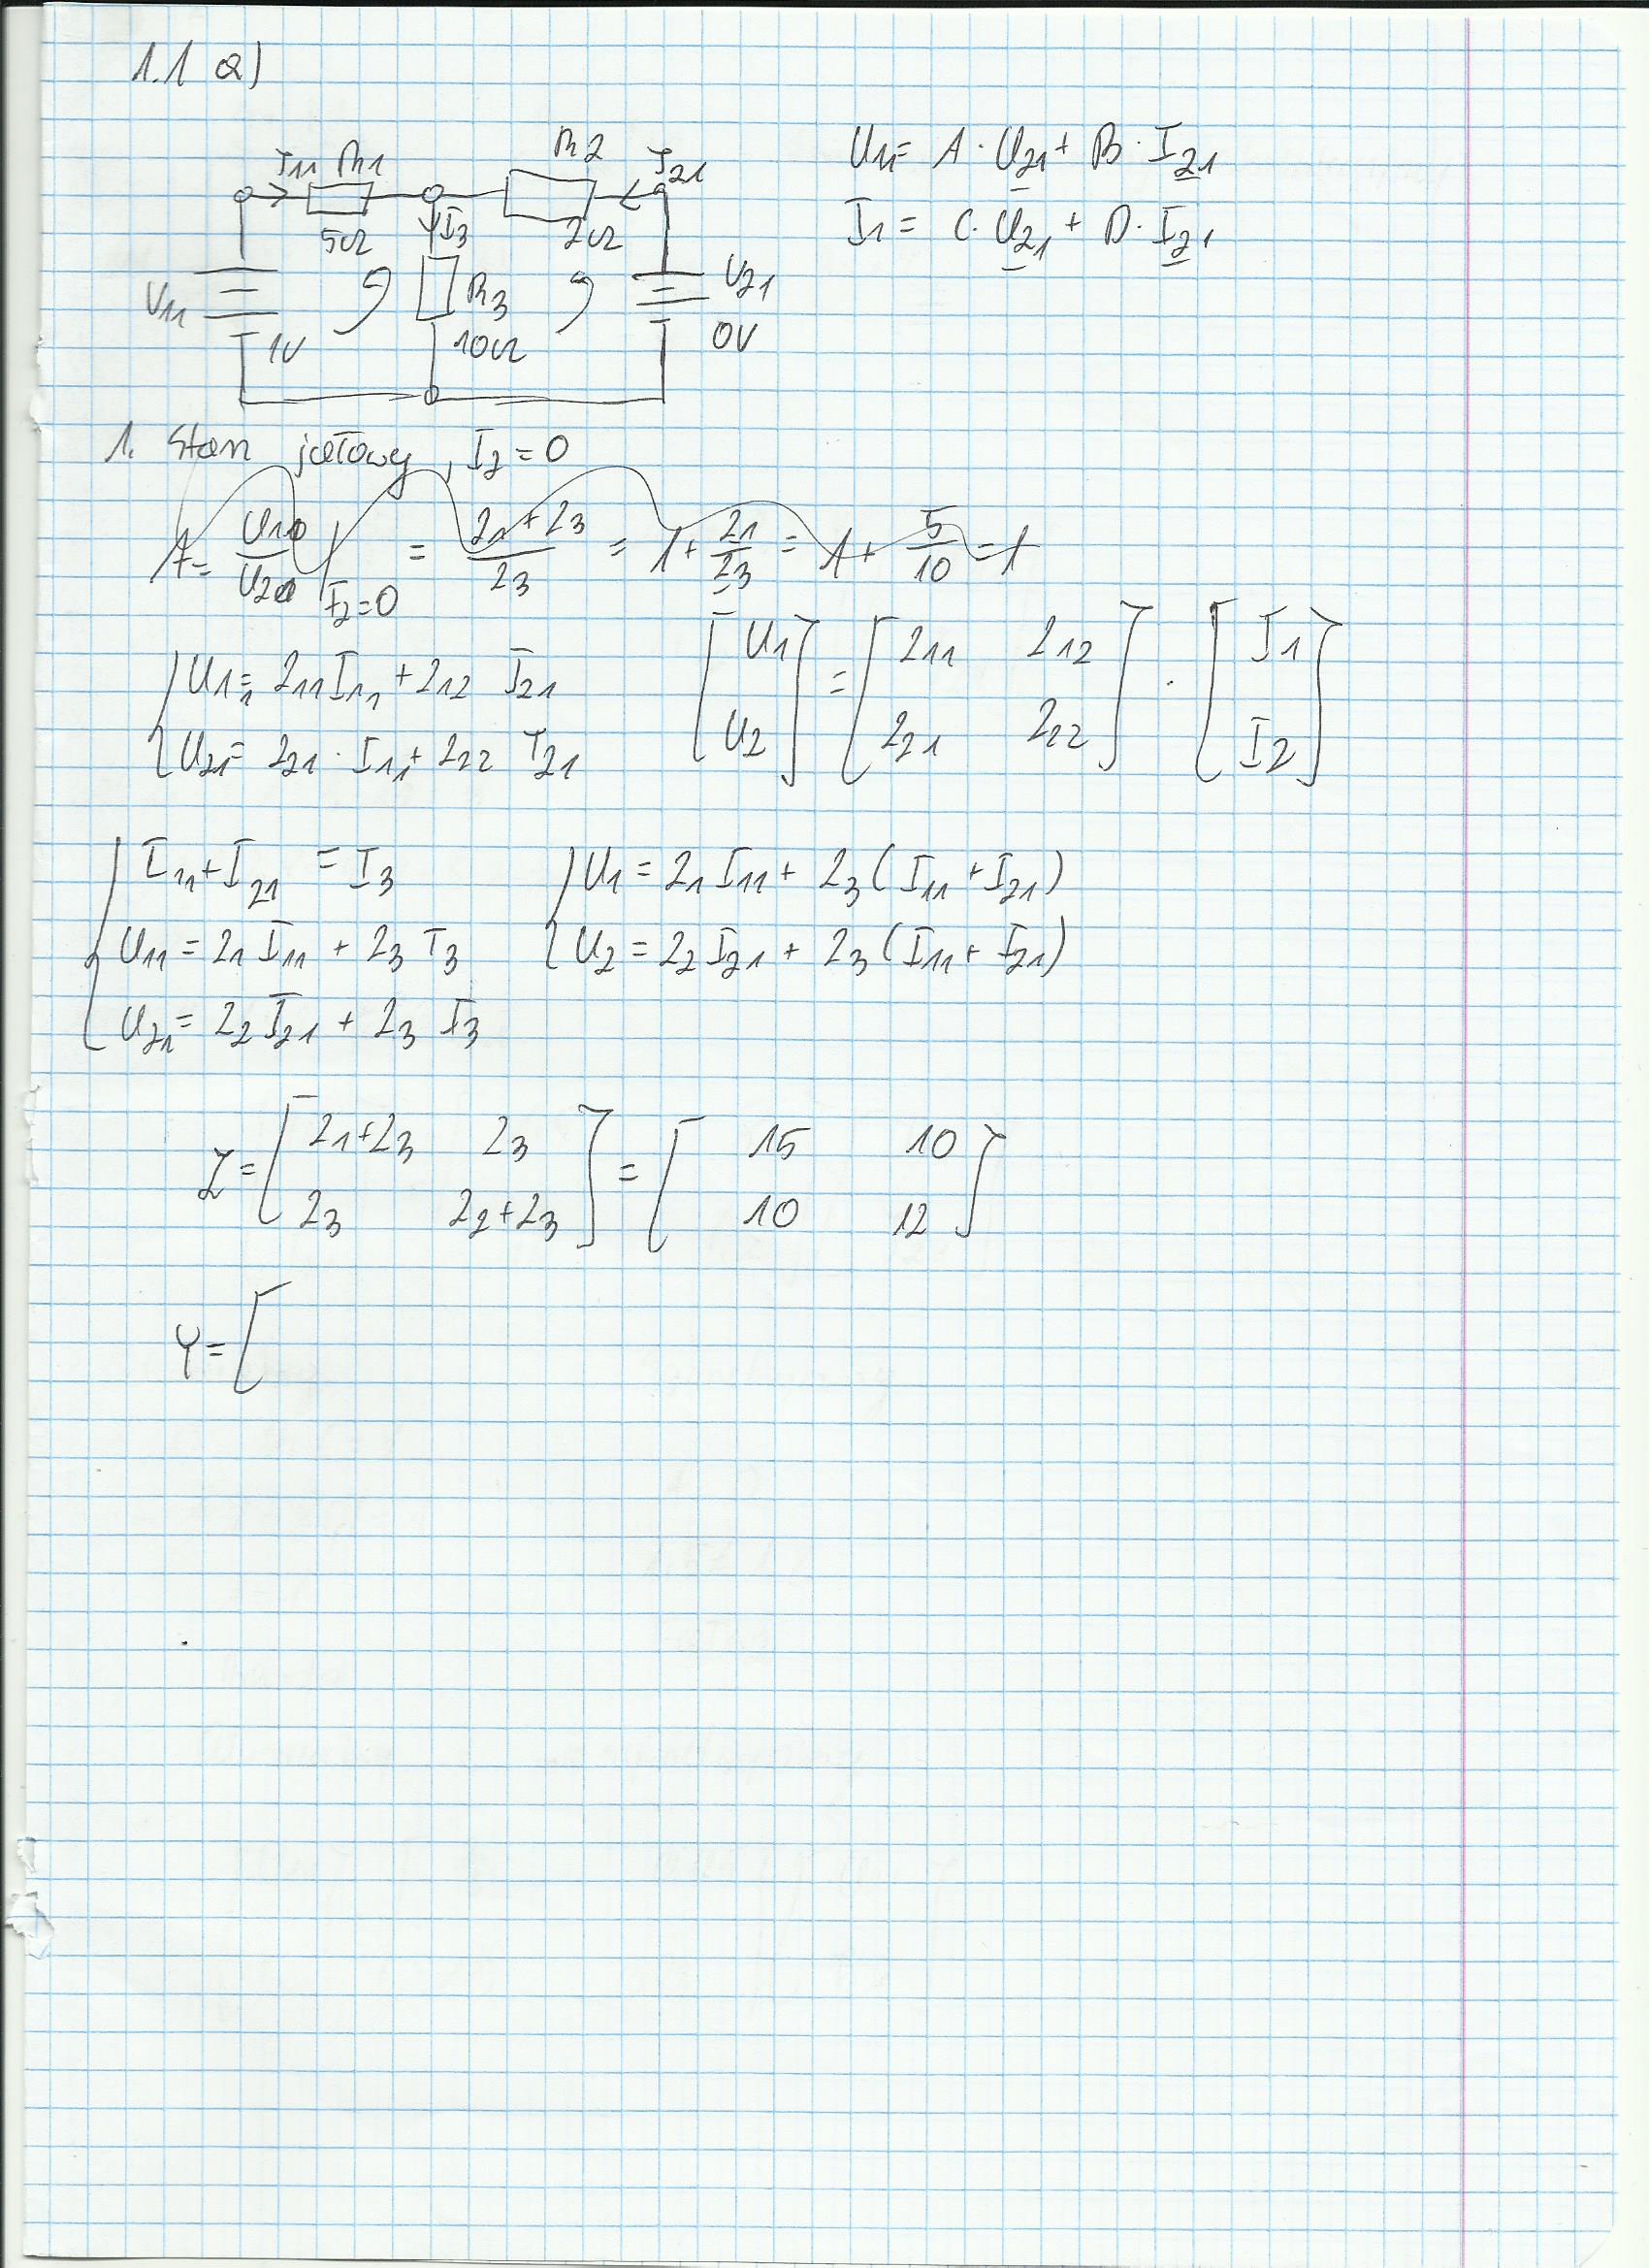 1.1 a)
I11 R1 R2 I21
5Ω I3 2Ω
U11 R3 U21
1V 10Ω 0V
U11= A · U21 + B · I21
I1 = C · U21 + D · I21
1. Stan jałowy, I2 = 0
A = U10/U20 | I2=0 = Z1+Z3/Z3 = 1 + Z1/Z3 = 1 + 5/10 = 1
U1= Z11 I11 + Z12 I21
U21= Z21 · I11 + Z22 I21
[U1 U2] = [Z11 Z12 Z21 Z22] · [I1 I2]
I11 + I21 = I3
U11 = Z1 I11 + Z3 I3
U21 = Z2 I21 + Z3 I3
U1 = Z1 I11 + Z3 (I11 + I21)
U2 = Z2 I21 + Z3 (I11 + I21)
Z = [Z1+Z3 Z3 = [15 10
Z3 Z2+Z3] 10 12]
Y = [